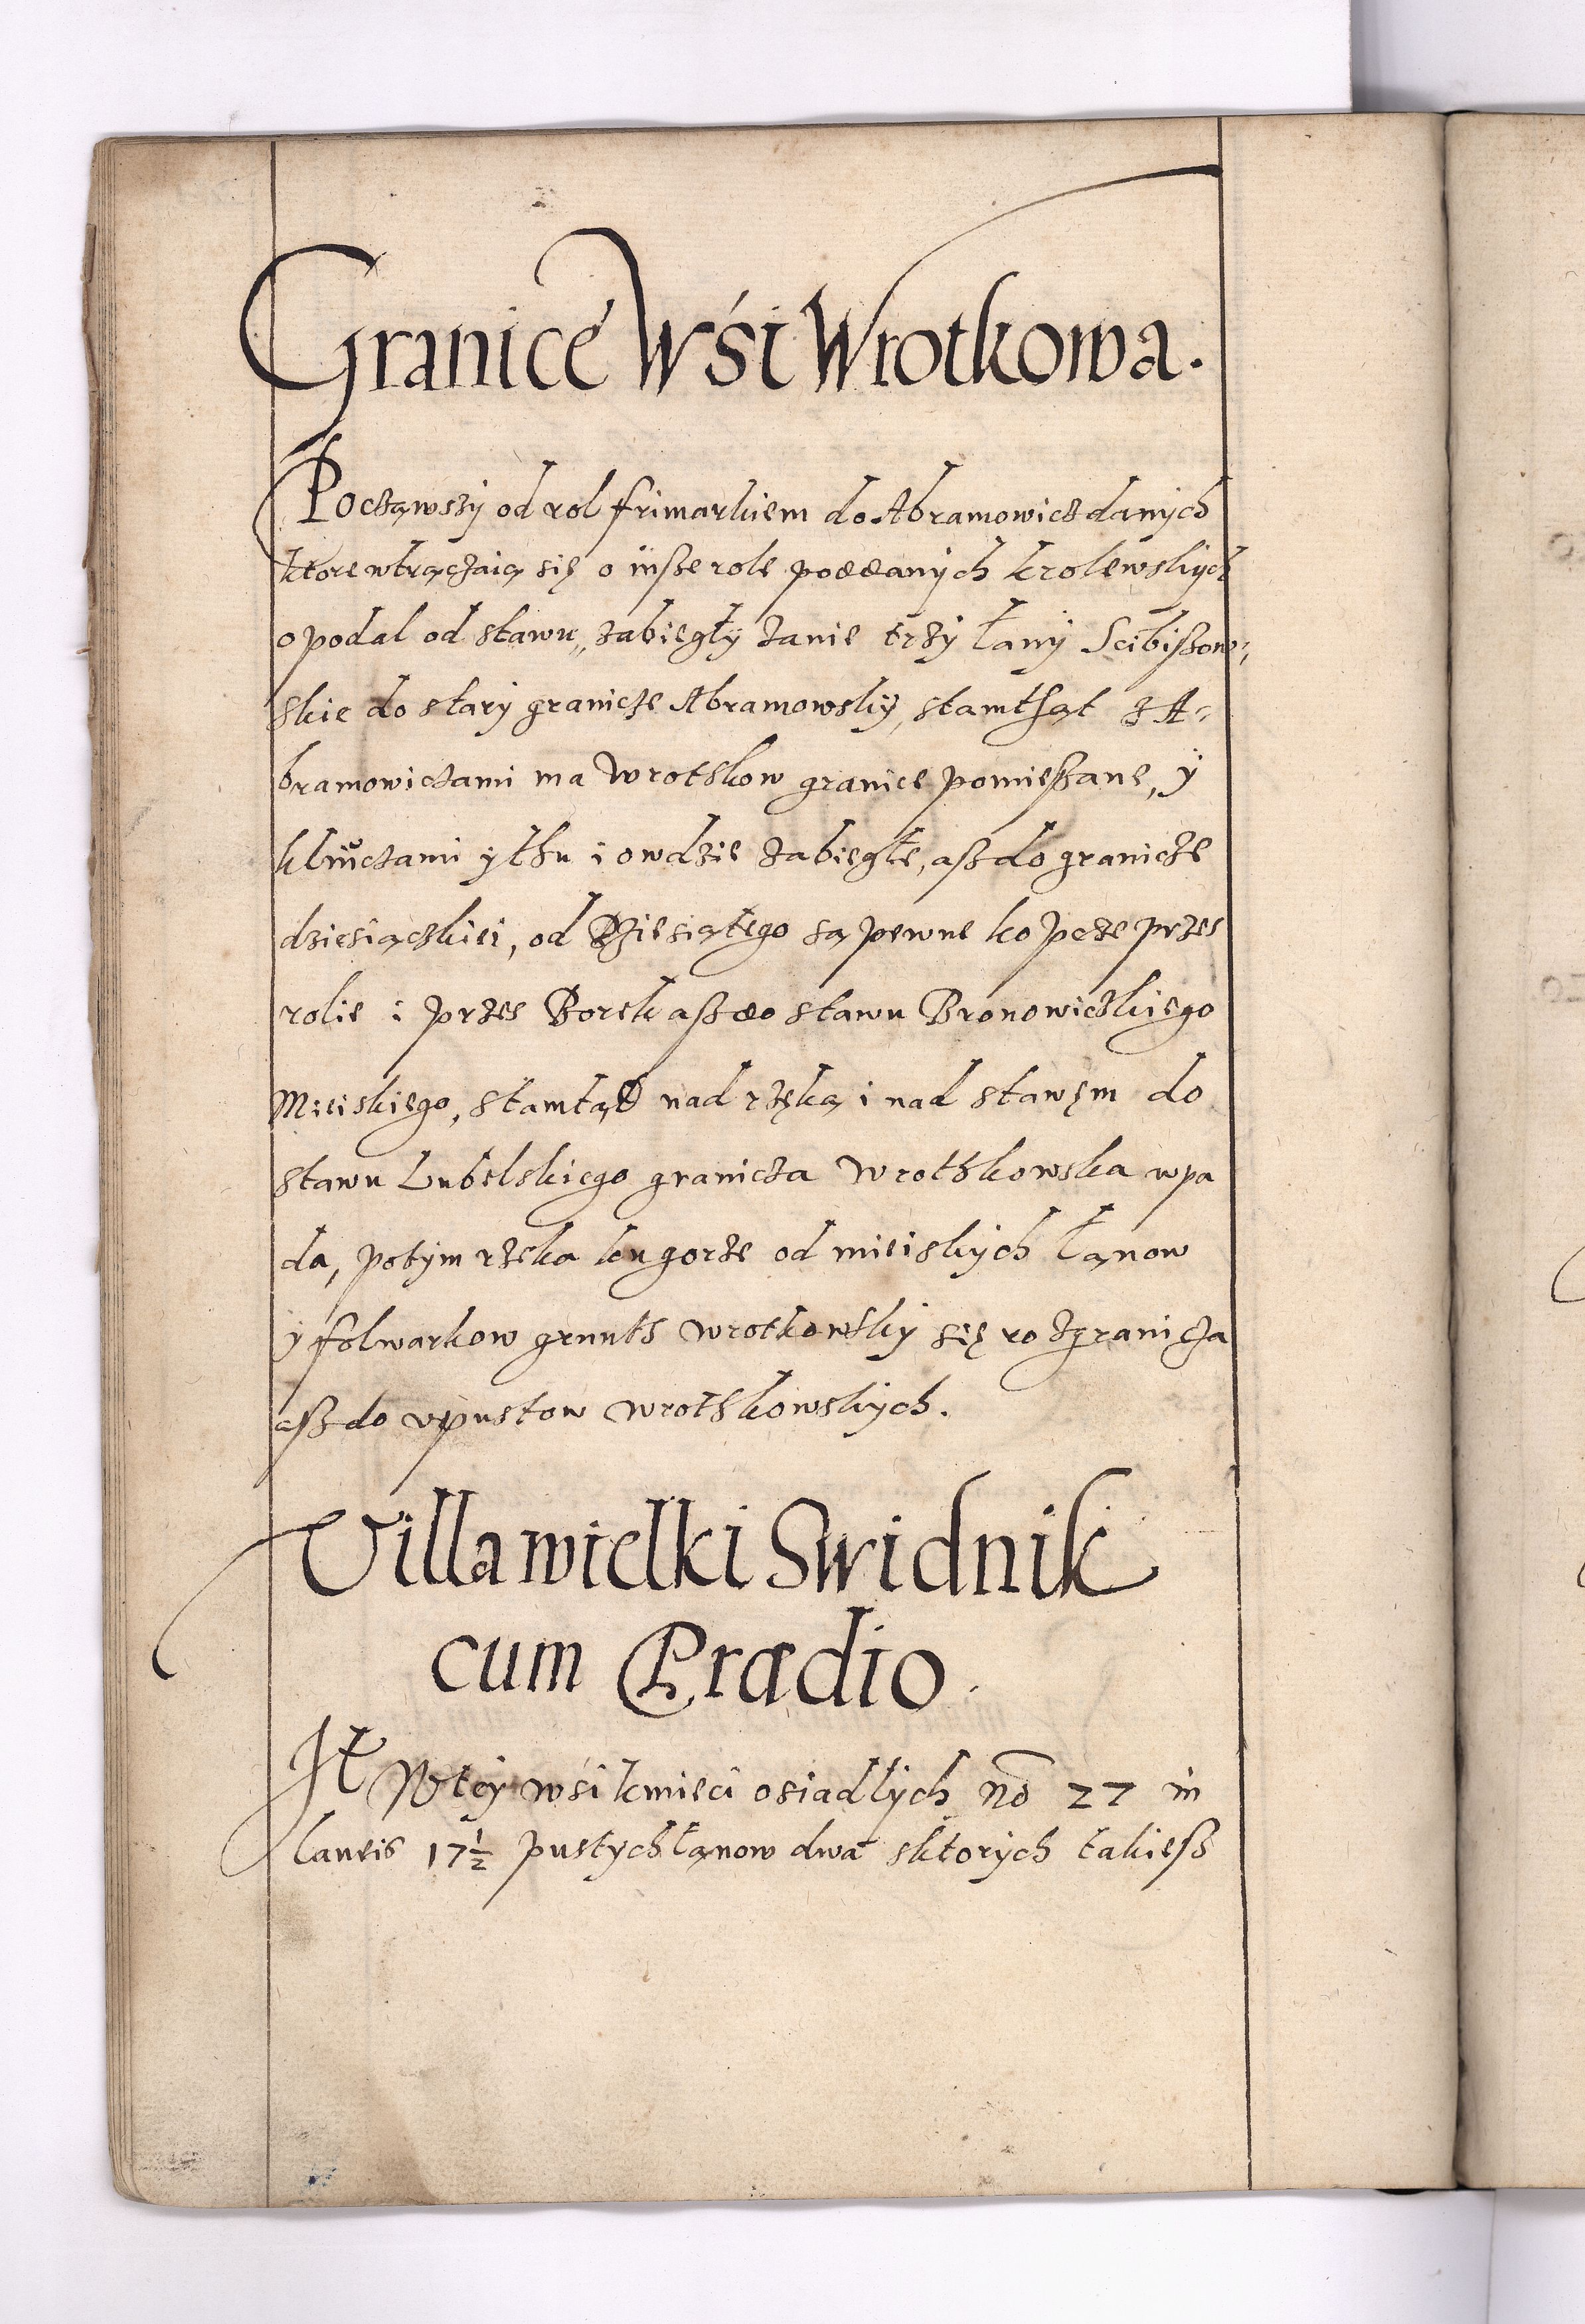 Granice Wśi Wrotkowa.
Począwszÿ od rol frimarkiem do Abramowicz danÿch
ktore wtrączaią się o inße role poddanÿch krolewskÿch
opodal od stawu, zabiegłÿ zanie trzÿ łanÿ Scibißow-
skie do starÿ granicze Abramowskÿ, stamthąt z A-
bramowiczami ma Wrotkow granice pomießzane, ÿ
kluczami ÿ thu i owdzie zabiegłe, aß do granicze
dziesiączkiei, od Dziesiątego są pewne kopcze przes
rolie i przes Borek aß do stawu Bronowiczkiego
Mieiskiego, stamtąd nad rzeką i nad stawęm do
stawu Lubelskiego granicza Wrothkowska wpa
da, potÿm rzeka ku gorze od mieiskÿch łanow
ÿ folwarkow grunth wrotkowskÿ się rozgranicza
aß do upustow wrothkowskÿch.
Villa wielki Swidnik
cum Prædio.
It Wteÿ wśi kmieci osiadłÿch no 27 in
laneis 17 1/2 pustÿch łanow dwa sktorÿch takieß